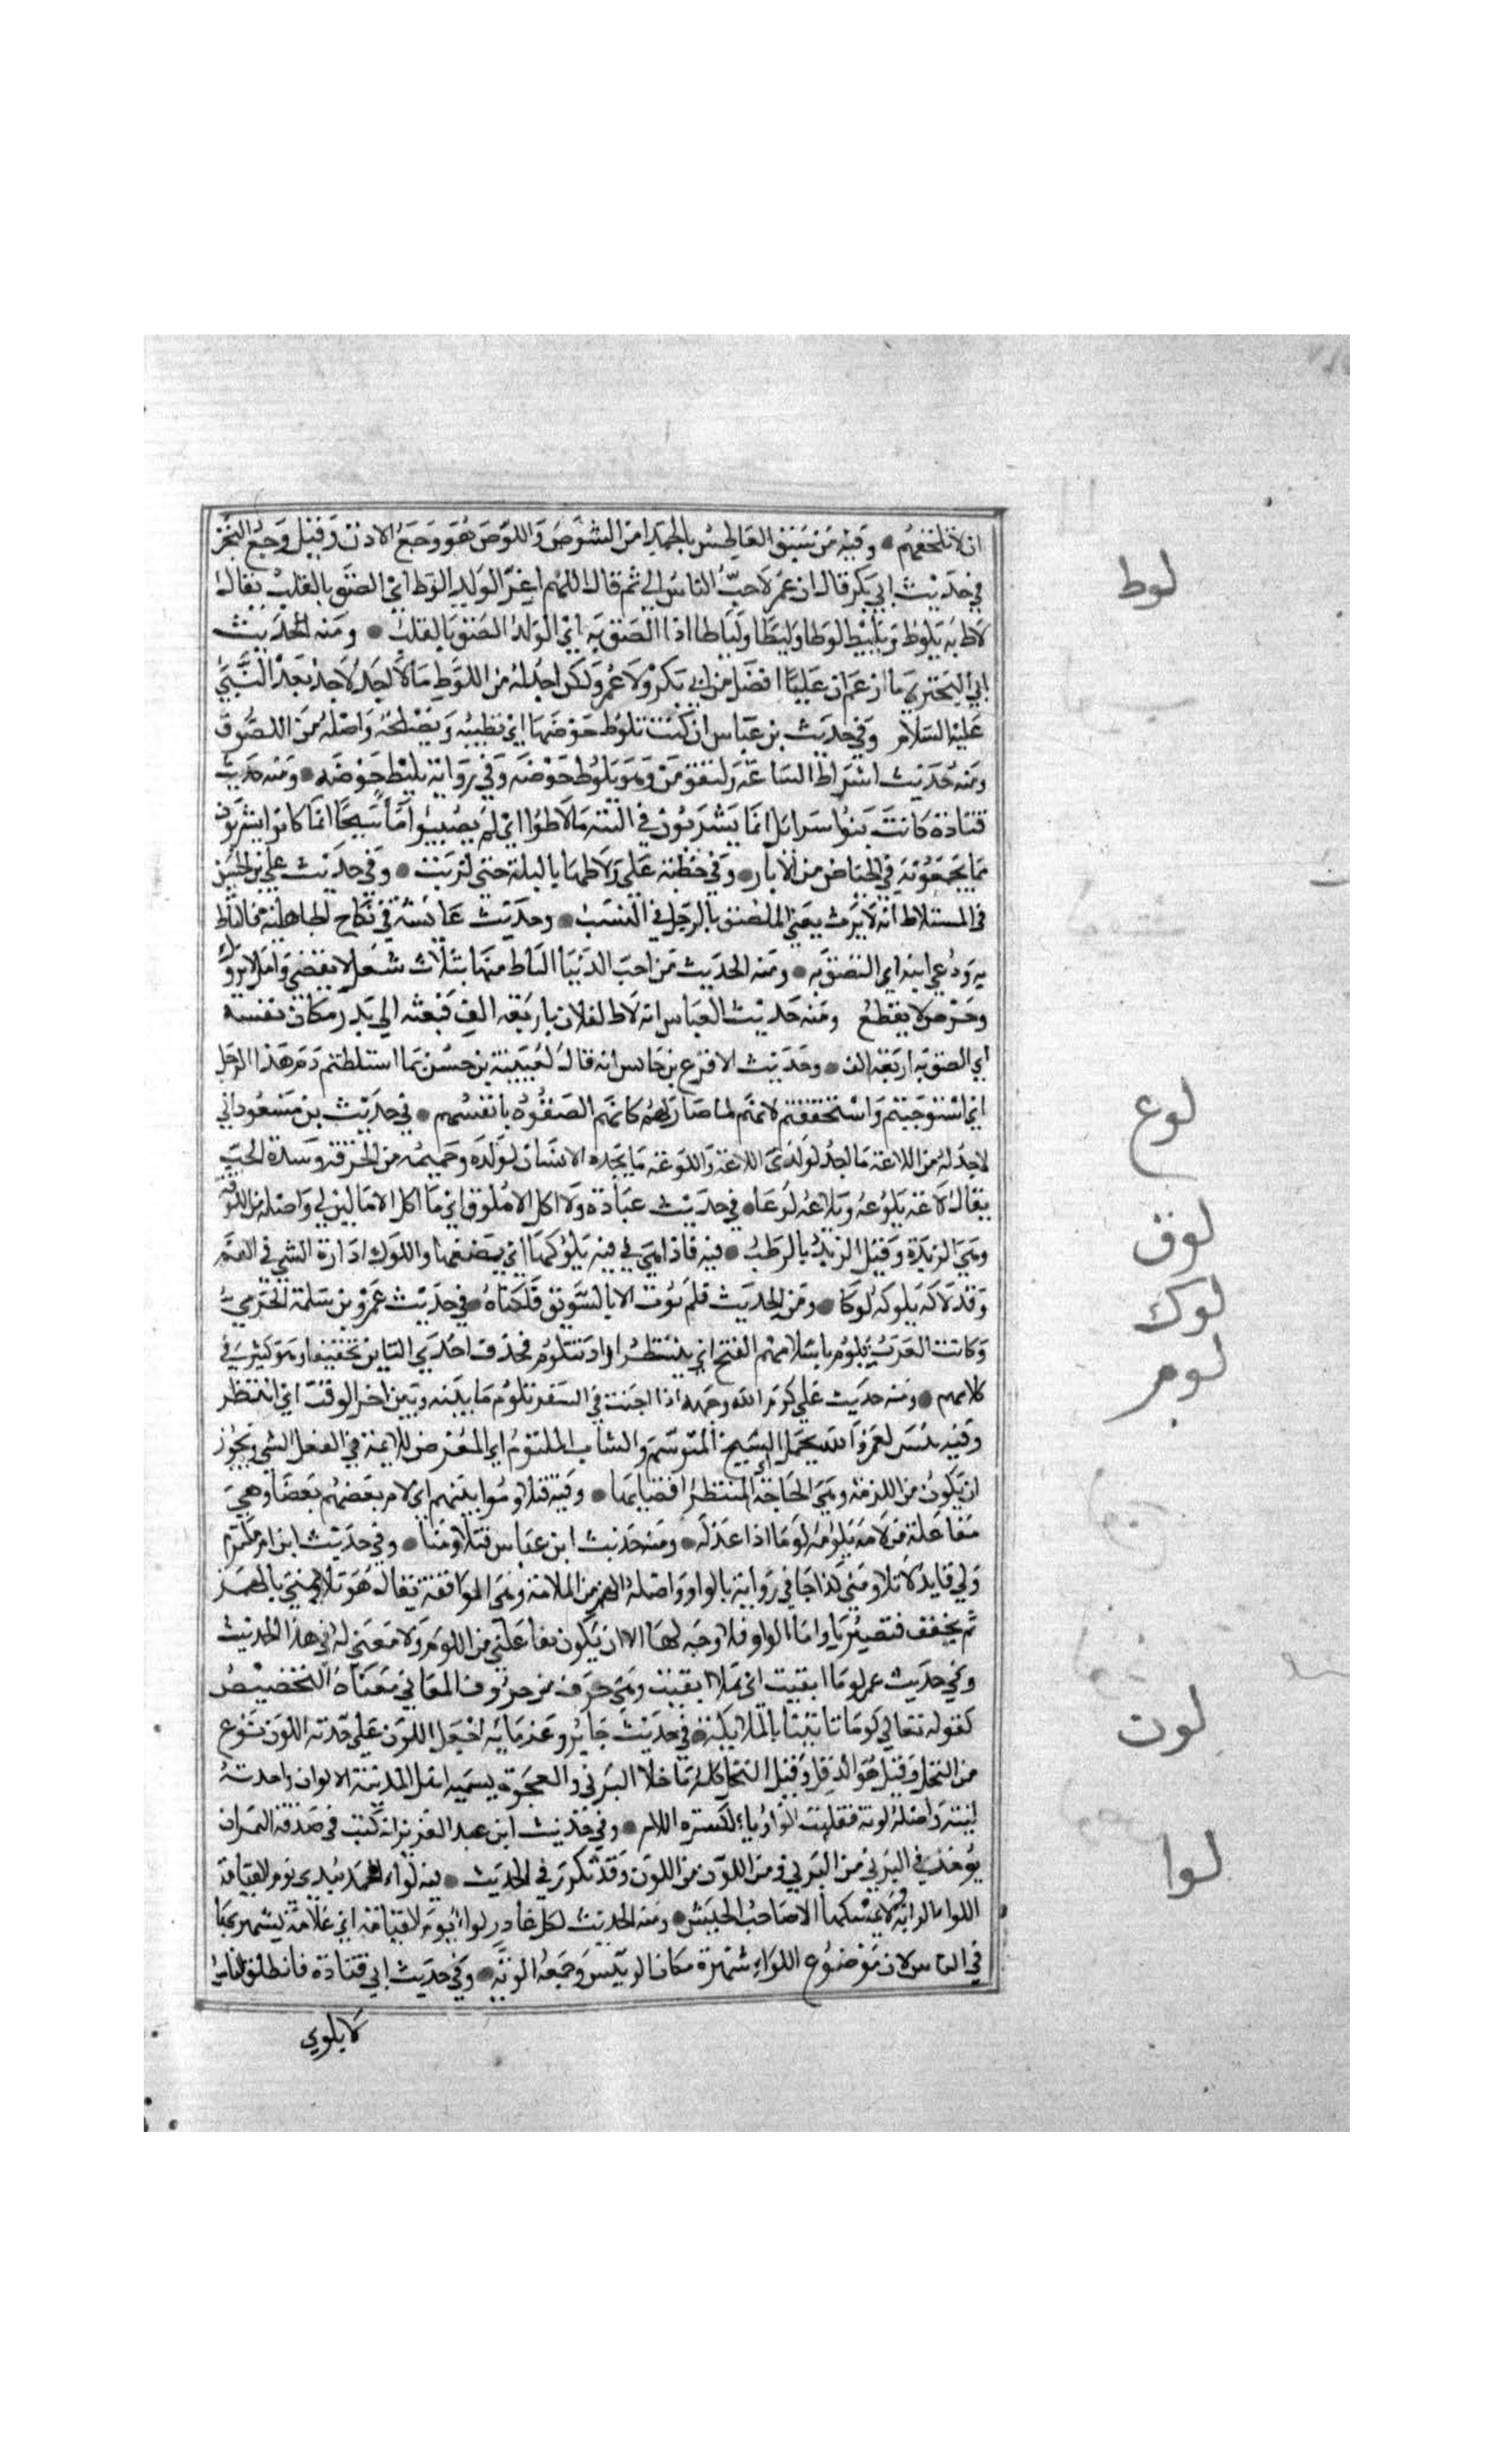 ان لا تلحقهم ● وفيه من سبق العاطس بالحمد امن الشوص واللوص هو وجع الاذن وقيل وجع النحر
لوط
في حديث ابي بكر قال ان عمر لاحب الناس الي ثم قال اللهم اعز الولد الوط اي الصق بالقلب يقال
لاط به يلوط ويليط لوطا وليطا ولياطا اذا الصق به اي الولد الصق بالقلب ● ومنه الحديث
ابي البختري ما ازعم ان عليا افضل من ابي بكر ولا عمر ولكن اجد له من اللوط ما لا اجد لاحد بعد النبي
عليه السلام وفي حديث بن عباس ان كنت تلوط حوضها اي تطينه وتصلحه واصله من اللصوق
ومنه حديث اشراط الساعة ولتقومن وهو يلوط حوضه وفي رواية يليط حوضه ● ومنه حديث
قتادة كانت بنوا سرائل انما يشربون في التيه ما لاطوا اي لم يصيبوا ما سيحا انما كانوا يشربون
مما يجمعونه في الحياض من الابار ● وفي خطبة علي ولاطها بالبلة حتى لزبت ● وفي حديث علي بن الحسين
في المستلاط انه لا يرث يعني الملصق بالرجل في النسب ● وحديث عائشة في نكاح الجاهلية فالتاط
به ودعي ابنه اي التصق به ● ومنه الحديث من احب الدنيا التاط منها بثلاث شغل لا ينقضي وامل لا يدرك
وحرص لا ينقطع ومنه حديث العباس انه لاط لفلان باربعة الف فبعثه الى بدر مكان نفسه
اي الصق به اربعة الف ● وحديث الاقرع بن حابس انه قال لعيينة بن حصن بما استلطتم دم هذا الرجل
لوع
اي استوجبتم واستحققتم لانه لما صار لهم كانهم الصقوه بانفسهم ● في حديث بن مسعود اني
لاجد له من اللاعة ما اجد لولدي اللاعة واللوعة ما يجده الانسان لولده وحميمه من الحرقة وشدة الحب
لوق
يقال لاعه يلوعه ويلاعه لوعا ● في حديث عبادة ولا اكل الا ما لوق اي ما اكل الا ما لين لي واصله من اللوقة
لوك
وهي الزبدة وقيل الزبد بالرطب ● فيه فاذا هي في فيه يلوكها اي يمضغها واللوك ادارة الشي في الفم
لوم
وقد لاكه يلوكه لوكا ● ومن الحديث فلم نوت الا بالسويق فلكناه ● في حديث عمرو بن سلمة الجرمي
وكانت العرب تلوم باسلامهم الفتح اي ينتظر اراد تتلوم فحذف احدى التاين تخفيفا وهو كثير في
كلامهم ● ومنه حديث علي كرم الله وجهه اذا اجنب في السفر تلوم ما بينه وبين اخر الوقت اي انتظر
وفيه بئس لعمرو الله عمل الشيخ المتوسم والشاب المتلوم اي المعرض للايمة في الفعل السي ويجوز
ان يكون من اللومة وهي الحاجة اي المنتظر لقضايها ● وفيه فتلاوموا بينهم اي لام بعضهم بعضا وهي
مفاعلة من لامه يلومه لوما اذا عذله ● ومنه حديث ابن عباس فتلاومنا ● وفي حديث ابن ام مكتوم
ولي قايد لا يلاومني كذا جا في رواية بالواو واصله الهمز من الملامة وهي الموافقة يقال هو يلايمني بالهمز
ثم يخفف فتصير يا واما الواو فلا وجه لها الا ان يكون يفاعلني من اللوم ولا معنى له في هذا الحديث
وفي حديث عمر لوما ابقيت اي هلا ابقيت وهي حرف من حروف المعاني معناه التخضيض
لون
كقوله تعالي لوما تاتينا بالملايكة ● في حديث جابر وغرمايه اجعل اللون على حدته اللون نوع
من النخل وقيل هو الدقل وقيل النخل كله ما خلا البرني والعجوة يسميه اهل المدينة الالوان واحدته
لينة واصله لونة فقلبت الواو ياء لكسرة اللام ● وفي حديث ابن عبد العزيز انه كتب في صدقة التمر ان
لوا
يوخذ في البرني من البرني ومن اللون من اللون وقد تكرر في الحديث ● فيه لواء الحمد بيدي يوم القيامة
اللوا الراية ولا يمسكها الا صاحب الجيش ● ومنه الحديث لكل غادر لواء يوم القيامة اي علامة يشهر بها
في الناس لان موضوع اللواء شهرة مكان الرييس وجمعه الوية ● وفي حديث ابي قتادة فانطلق الناس
لا يلوي